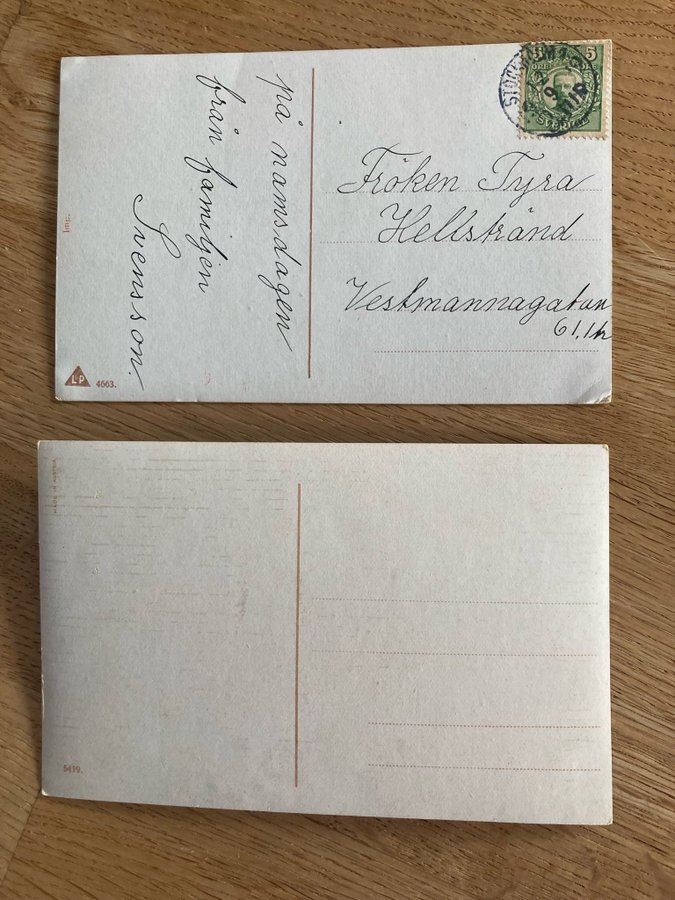 på namsdagen
från familjen
Svensson.
Imp.
LP
4663.
5 5
ÖRE
SVERIGE
STOCKHOLM
Fröken Tyra
Hellstrand
Vestmannagatan
61, 1 tr
5419.